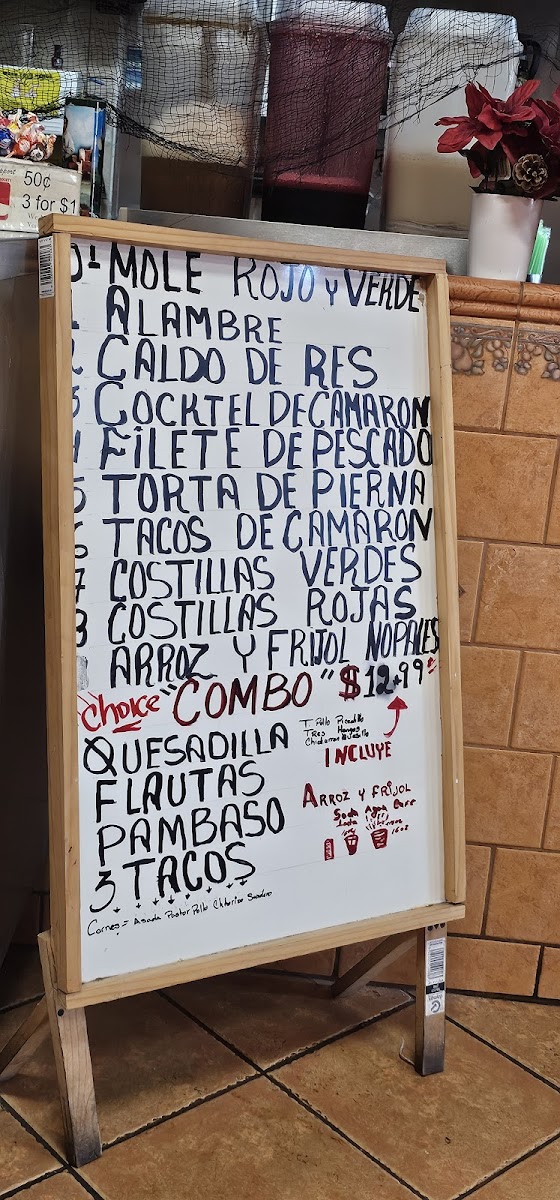 50¢
3 for $1
MOLE ROJO Y VERDE
ALAMBRE
CALDO DE RES
COCKTEL DE CAMARON
FILETE DE PESCADO
5 TORTA DE PIERNA
6 TACOS DE CAMARON
7 COSTILLAS VERDES
8 COSTILLAS ROJAS
ARROZ Y FRIJOL NOPALES
Choice "COMBO" $12.99
QUESADILLA
FLAUTAS
PAMBASO
3 TACOS
Carnes= Asada Pastor Pollo Chhorizo
T. Pollo Picadillo
Tres Hongos
INCLUYE
ARROZ Y FRIJOL
Soda Agua Cafe
Lata
16oz